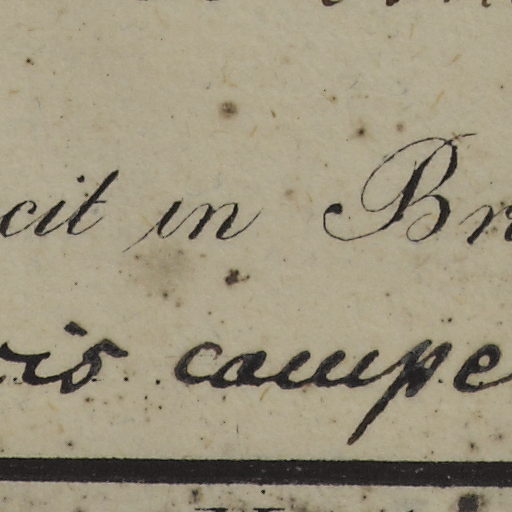 cit in Br
is campe